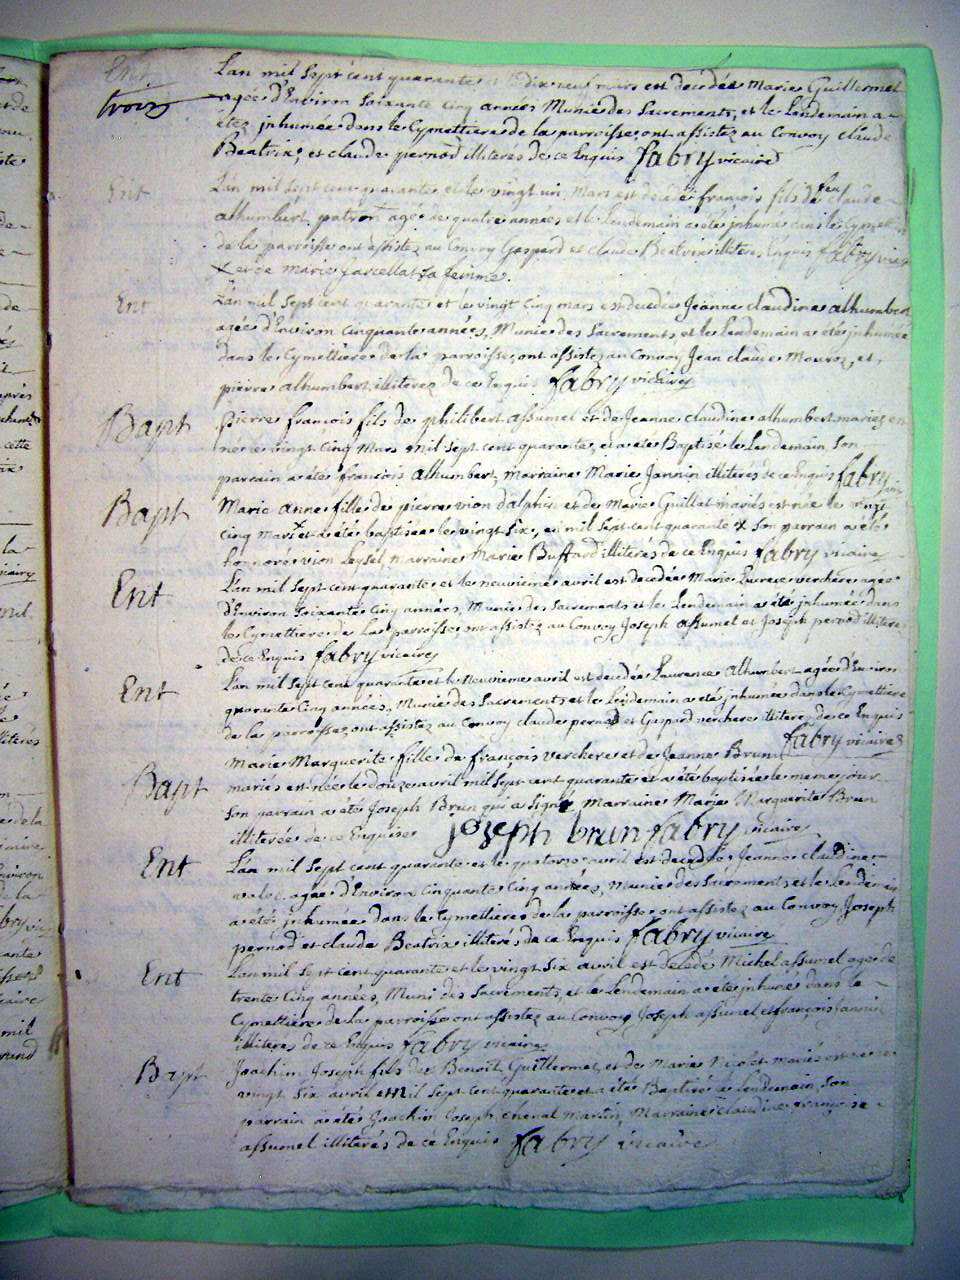 Ent
trois
L'an mil Sept cent quarante et le dix neuf mars est decédée Marie Guillermet
agée d'Environ Soixante Cinq années Munie des Sacrements, et le Lendemain a
eté jnhumée dans le Cymettiere de la parroisse, ont assistez au Convoy claude
Beatrix, et claude pernod illiterés de ce Enquis fabry vicaire
Ent
L'an mil Sept cent quarante et le vingt un Mars est décédé françois fils de feu claude
alhumbert patron agé de quatre années et le Lendemain a eté jnhumé dans le Cymet
de la parroisse ont assistez au Convoy Gaspard et claude Beatrix illiteres Enquis fabry vic
x et de Marie farcellat sa femme.
Ent
L'an mil Sept cent quarante et le vingt Cinq mars est decedée Jeanne claudine alhumbert
agée d'Environ Cinquante années, Munie des Sacrements et le lendemain a eté jnhumée
dans le Cymettiere de la parroisse, ont assistez au Convoy Jean claude Mouroz, et,
pierre alhumbert, illiterez de ce Enquis fabry vicaire
Bapt
Pierre françois fils de philibert assumel et de Jeanne claudine alhumbert mariez
né le vingt Cinq Mars mil Sept cent quarante, et a eté Baptisé le Lendemain, Son
parrain a eté françois alhumbert, marraine Marie Jannin illiterés de ce Enquis fabry
Bapt
Marie anne fille de pierre vion dalphin et de Marie Guillat mariés est née le vingt
Cinq Mars x et a été baptisée le vingt Six, en mil Sept cent quarante x Son parrain a eté
honnoré vion Loysel marraine Marie Buffard illiterés de ce Enquis fabry vicaire
Ent
L'an mil Sept cent quarante et le neuvieme avril est decedée Marie Lucrece verchere agée
d'Environ Soixante Cinq années, Munie des Sacrements et le Lendemain a eté jnhumée dans
le Cymettiere de la parroisse ont assistez au Convoy Joseph assumel et Joseph pernod illiteré
de ce Enquis fabry vicaire
Ent
L'an mil Sept cent quarante et le Neuvieme avril est decedée Laurence alhumbert agée d'Environ
quarante Cinq années, Munie des Sacrements et le Lendemain a eté jnhumée dans le Cymettiere
de la parroisse, ont assistez au Convoy claude pernod et Gaspard verchere illiterez de ce Enquis
fabry vicaire
Bapt
Marie Marguerite fille de françois verchere et de Jeanne Brun
mariés est née le douze avril mil Sept cent quarante et a eté baptisée le meme jour
Son parrain a eté Joseph Brun qui a Signé Marraine Marie Marguerite Brun
illiterée de ce Enquise joseph brun fabry vicaire
Ent
L'an mil Sept cent quarante et le quatorze avril est decedée Jeanne claudine
agée d'Environ Cinquante Cinq années, Munie des Sacrements et le Lendemain
a eté jnhumée dans le Cymettiere de la parroisse ont assistez au Convoy Joseph
pernod et claude Beatrix illiterés de ce Enquis fabry vicaire
Ent
L'an mil Sept cent quarante et le vingt Six avril est decedé Michel assumel agé de
trente Cinq années, Muni des Sacrements, et le Lendemain a eté jnhumé dans le
Cymettiere de la parroisse ont assistez au Convoy Joseph assumel et françois Jannin
illiteres de ce Enquis fabry vicaire
Bapt
Joachim Joseph fils de Benoit Guillermet, et de Marie Nicolet mariés est né
vingt Six avril et Mil Sept cent quarante et a eté Baptisé le lendemain, Son
parrain a eté Joachim Joseph cheval martin, Marraine claudine françoise
assumel illiterés de ce Enquis fabry vicaire